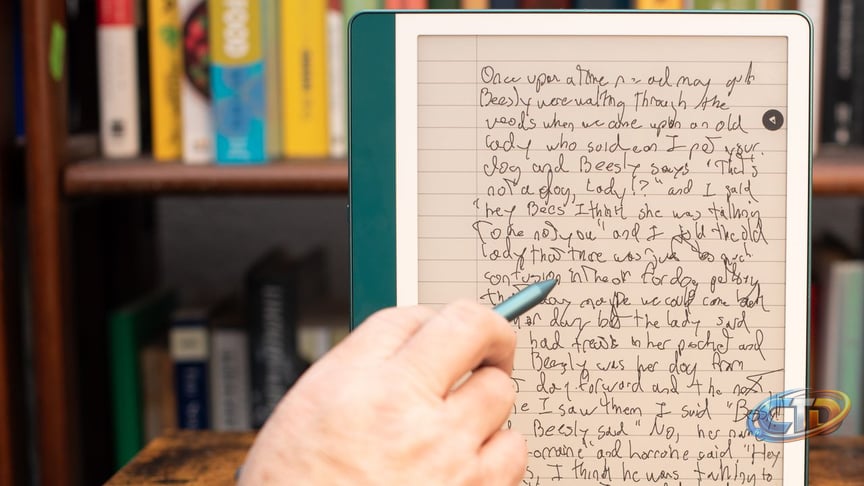 FOOD
Once upon a time
Beesly were walking through the
woods when we came upon an old
lady who said can I pet your
dog and Beesly says "That's
not a dog, Lady!?" and I said
"hey Bees I think she was talking
to me not you" and I told the old
lady that there was just too much
confusion in the air for dog petting
day maybe we could come back
day but the lady said
had treats in her pocket and
Beesly was her dog from
day forward and the next
I saw them I said "
Beesly said "No, her name
and horraine said "Hey
I think he was talking to
CTD